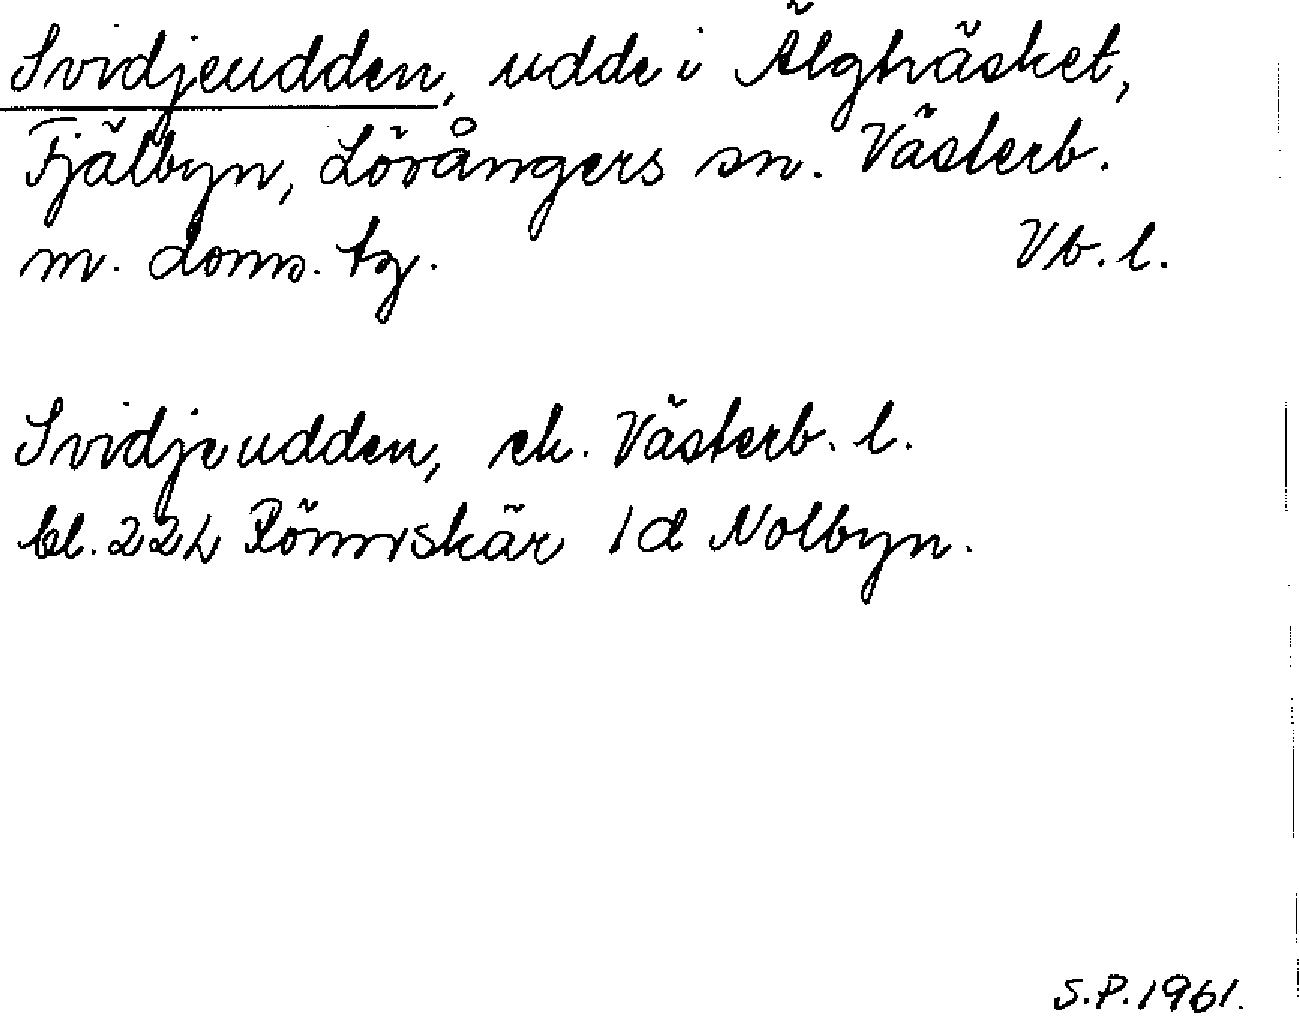 Svidjeudden, udde i Älgträsket,
Fjälbyn, Lövångers sn. Västerb.
m. doms. tg. Vb. l.
Svidjeudden, ek. Västerb. l.
bl. 22L Rönnskär 1d Nolbyn.
S.P. 1961.